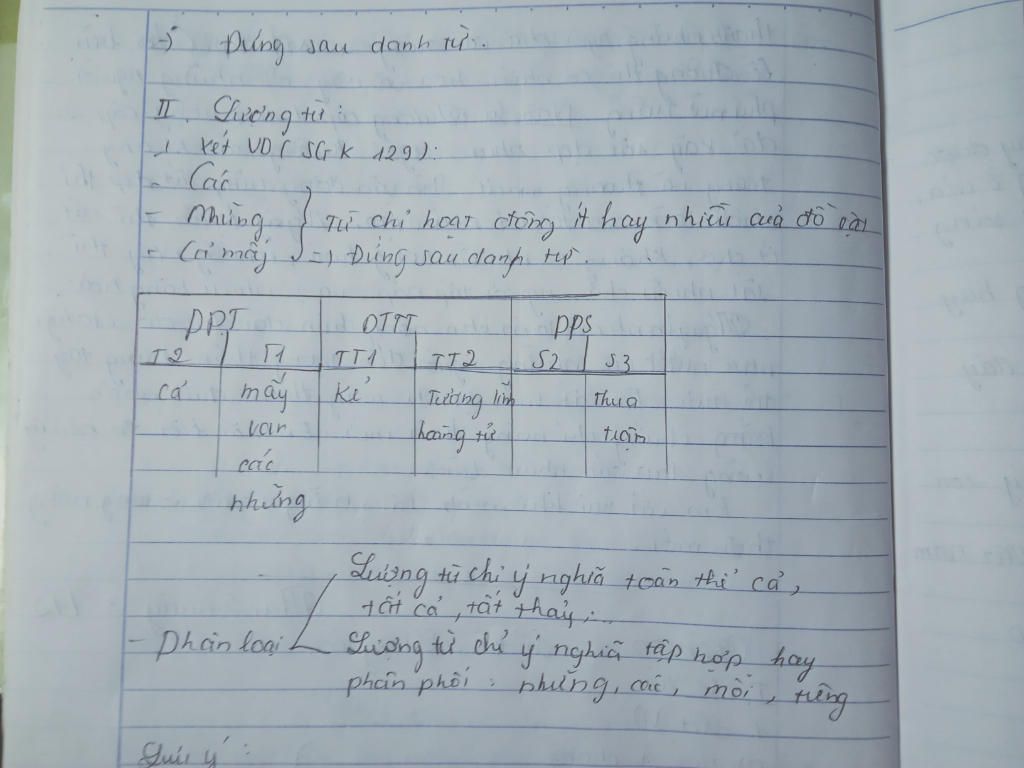 -) Đứng sau danh từ.
II. Lượng từ:
1 Xét VD ( SGK 129):
- Các
- Những } Từ chỉ hoạt động ít hay nhiều của đồ vật
- Cả mấy =) Đứng sau danh từ.
DPT DTTT DPS
T2 T1 TT1 TT2 S2 S3
cả mấy kẻ tướng lĩnh thua
vạn hoàng tử trận
các
những
Lượng từ chỉ ý nghĩa toàn thể cả,
tất cả, tất thảy,..
- Phân loại Lượng từ chỉ ý nghĩa tập hợp hay
phân phối : những, các, mỗi, từng
Lưu ý :